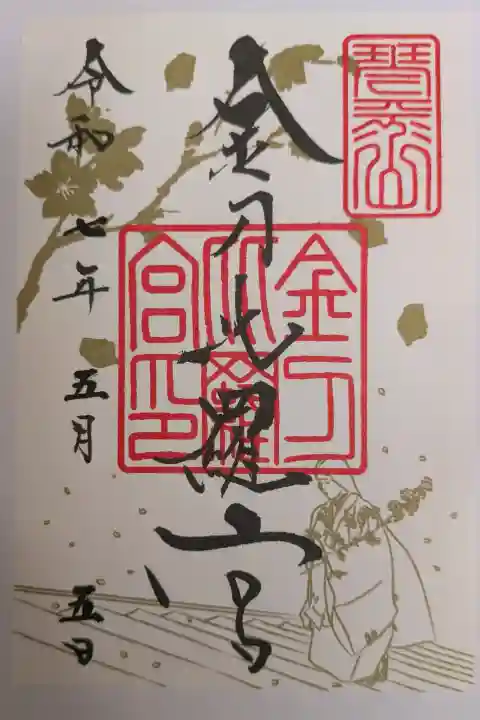 琴平山
金刀比羅宮
金刀比羅宮印
令和七年五月五日